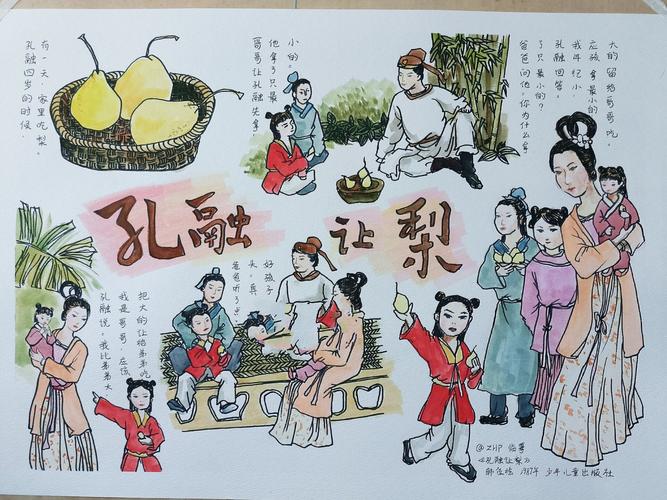 孔融四岁的时候,
有一天,家里吃梨。
哥哥让孔融先拿,
他拿了只最
小的。
爸爸问他,你为什么拿
了只最小的?
孔融回答:
我年纪小,
应该拿最小的
大的留给哥哥吃。
孔融 让 梨
孔融说,我比弟弟大
我是哥哥,应该
把大的让给弟弟吃。
爸爸听了
真
好孩子
@ZHP 临摹
《孔融让梨》
1987年 少年儿童出版社